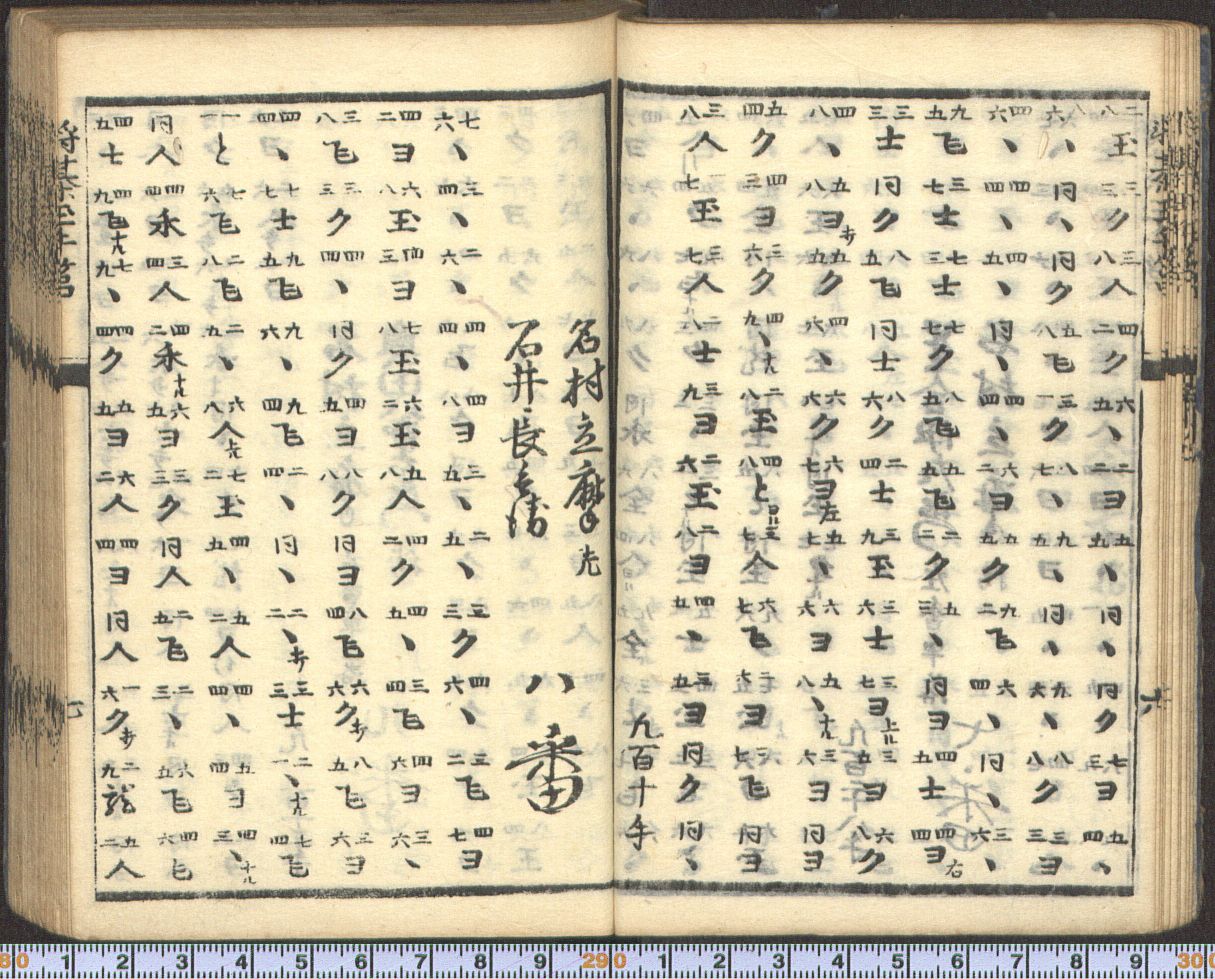 二八玉 三三ク 三八人 四二ク 六五、 二二ヨ 五九、 同、 同ク 七三ヨ 五四、
八六、 同、 同ク 五八飞 三一ク 八七、 九五、 同、 九六、 八八ク 三三ヨ
四六、 四四、 四五、 同、 四四、 六二ヨ 五九ク 九二飞 六四、 同、 三六、
九五飞 三七士 七三士 七七ク 八五飞 五九飞 二二ク 五三、 同ヨ 四五士 四四ヨ右
三三士 同ク 八五飞 同士 八六ク 二四士 三九玉 三六士 三七ヨ上ル 三五ヨ 六八ク
四八、 五八ヨ歩 五五ク 四六、 六六ク 六七ヨ左 五七、 六六ヨ 五八、ナル 三六ヨ 同ヨ
五四ク 四三ヨ 三六ク 四九、ナル 二八玉 四八と 七人 六七飞 二六ヨ 三六飞 同ヨ
三八人 七玉 三七人 二八士 三九ヨ 二六玉 二八ヨ 四五士 三五ヨ 同ク 同、
九百十手
六
八番
名村立摩先
石井長兵衛
七六、 三四、 二六、 四四、 四八ヨ 三五、 二五、 三三ク 四六、 三二飞 四七ヨ
四二ヨ 六八玉 四三ヨ 七八玉 六二玉 五八人 四二ク 四五、 三四飞 四六飞 三六、
三八飞 三三ク 四四、 同ク 四五ヨ 八八ク 同ヨ 八四飞 六六ク歩 八五飞 三六ヨ
四四、 七七士 九五飞 九六、 九四飞 二四、 同、 二二、歩 三三士 二一、ナル 七四飞
一一と 七六飞 二八飞 二五、 六八人上 七二玉 四五、 五二人 四四、 五四ヨ 四三、ナル
同人 四四永 三四人 四二永ナル 六五ヨ 三三ク 同人 二五飞 二三、 六五飞 四六飞
四五士 四九飞ナル 七九、 四四ク 五五ヨ 六二人 四四ヨ 同人 一六ク歩 二九龍 五二人
七